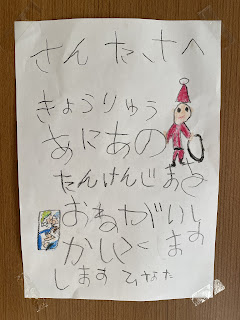 さんたさへ
きょうりゅう
あにあの
たんけんじま
おねがいし
かい ます
します ひなた